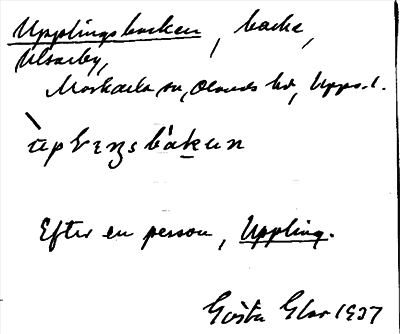 Upplingsbacken, backe,
Ulvarby,
Morkarla sn, Olands hd, Upps. l.
Efter en person, Uppling.
Gösta Glar 1937